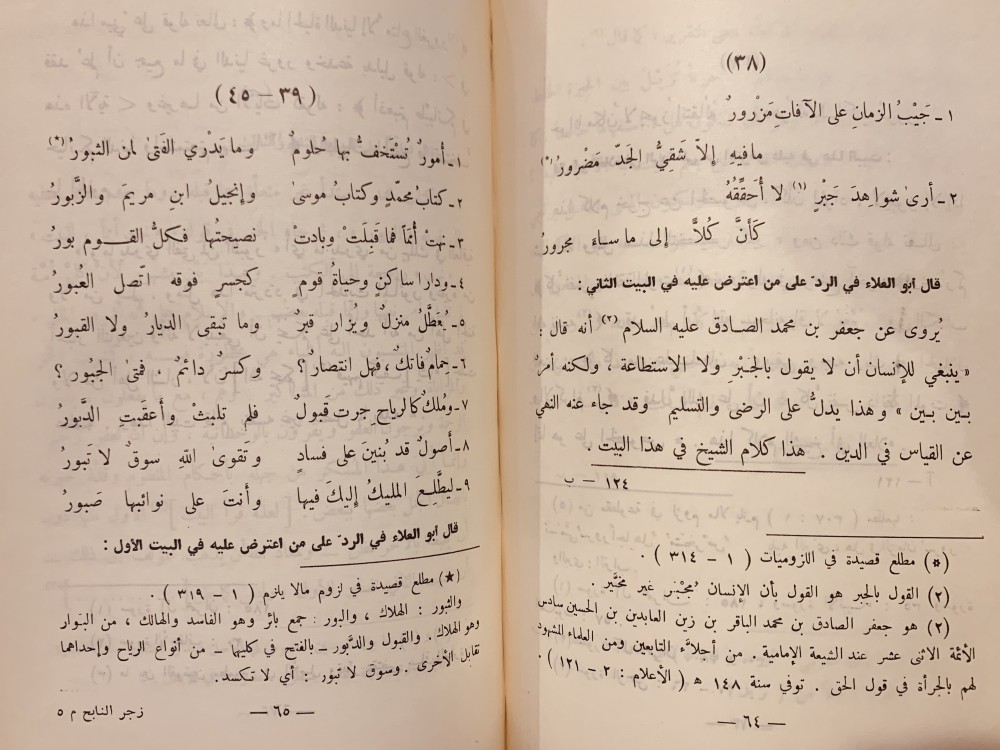 (٣٨)
١ ـ جَيْبُ الزمانِ على الآفاتِ مَزْرورُ
مافيهِ إلاّ شَقِيُّ الجَدِّ مَضْرورُ(*)
٢ ـ أرىٰ شواهِدَ جَبْرٍ (١) لا أُحَقِّقُهُ
كَأَنَّ كُلاًّ إلى ماساءَ مجرورُ
قال ابو العلاء في الردّ على من اعترض عليه في البيت الثاني :
يُروى عن جعفر بن محمد الصادق عليه السلام (٢) أنه قال :
« ينبغي للإنسان أن لا يقول بالجَبْرِ ولا الاستطاعة ، ولكنه أمرٌ
بين بين » وهذا يدلُّ على الرضى والتسليم وقد جاء عنه النهي
عن القياس في الدين . هذا كلام الشيخ في هذا البيت .
١٢٤ – ب
(*) مطلع قصيدة في اللزوميات ( ١ – ٣١٤ ) .
(٢) القول بالجبر هو القول بأن الإنسان مُجْبَرٌ غير مخيّر .
(٢) هو جعفر الصادق بن محمد الباقر بن زين العابدين بن الحسين سادس
الأئمة الاثنى عشر عند الشيعة الإمامية . من أجلاّء التابعين ومن العلماء المشهود
لهم بالجرأة في قول الحق . توفي سنة ١٤٨ ه ( الأعلام : ٢ – ١٢١ ) .
– ٦٤ –
(٣٩ – ٤٥)
١ـ أمورٌ تُسْتَخفُّ بها حُلومٌ وما يَدْري الفَتىٰ لمن الثبورُ (*)
٢ـ كتابُ محمّدٍ وكتابُ موسىٰ وإنجيلُ ابنِ مريمَ والزَّبورُ
٣ـ نهتْ أُمَماً فما قَبِلَتْ وبادتْ نصيحتُها فكلُّ القـــوم بورُ
٤ـ ودارا ساكنٍ وحياةُ قومٍ كجسرٍ فوقه اتّصل العُبورُ
٥ـ يُعَطَّلُ منزلٌ ويُزار قبرٌ وما تبقى الديارُ ولا القبورُ
٦ـ حِمامٌ فاتكٌ ، فهل انتصارٌ ؟ وكسرٌ دائمٌ . فمتىٰ الجُبُور ؟
٧ـ ومُلكٌ كالرياحِ جرت قَبولٌ فلم تلبثْ وأعقبتِ الدَّبورُ
٨ـ أصولٌ قد بُنينَ على فسادٍ وتَقوىٰ اللهِ سوقٌ لا تَبورُ
٩ـ ليطَّلِعَ المليكُ إليكَ فيها وأنتَ على نوائبها صَبورُ
قال ابو العلاء في الردّ على من اعترض عليه في البيت الأول :
(★) مطلع قصيدة في لزوم مالا يلزم ( ١ – ٣١٩ ) .
والثبور : الهلاك ، والبور : جمع بائر وهو الفاسد والهالك ، من البَوار
وهو الهلاك . والقبول والدَّبور ـ بالفتح في كليهما ـ من أنواع الرياح وإحداهما
تقابل الأخرى . وسوق لا تبور : أي لا تكسد .
– ٦٥ –
زجر النابح م ٥